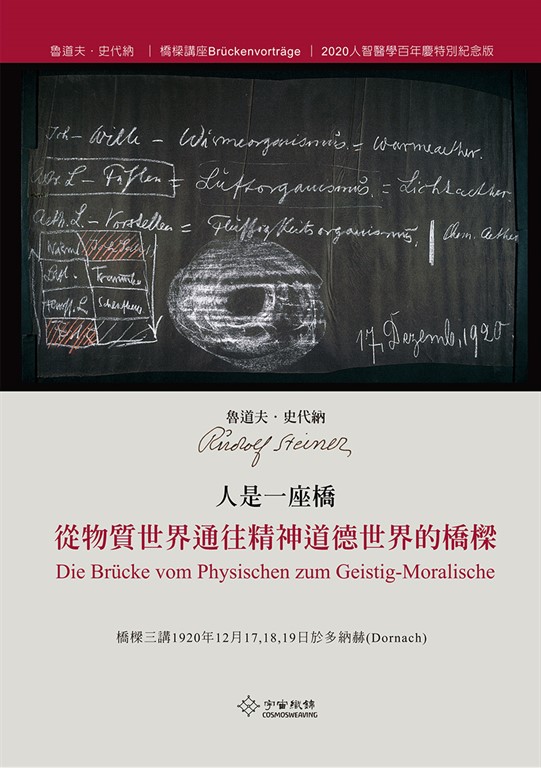 魯道夫・史代納 | 橋樑講座Brückenvorträge | 2020人智醫學百年慶特別紀念版
Ich - Wille - Wärmeorganismus. = Wärmeaether.
Astr. L - Fühlen = Luftorganismus. = Lichtaether.
Aeth. L. - Vorstellen = Flüssigkeitsorganismus. | Chem. Aether
Wärme
Luft.
17. Dezemb. 1920.
魯道夫・史代納
Rudolf Steiner
人是一座橋
從物質世界通往精神道德世界的橋樑
Die Brücke vom Physischen zum Geistig-Moralische
橋樑三講1920年12月17,18,19日於多納赫(Dornach)
宇宙織錦
COSMOSWEAVING